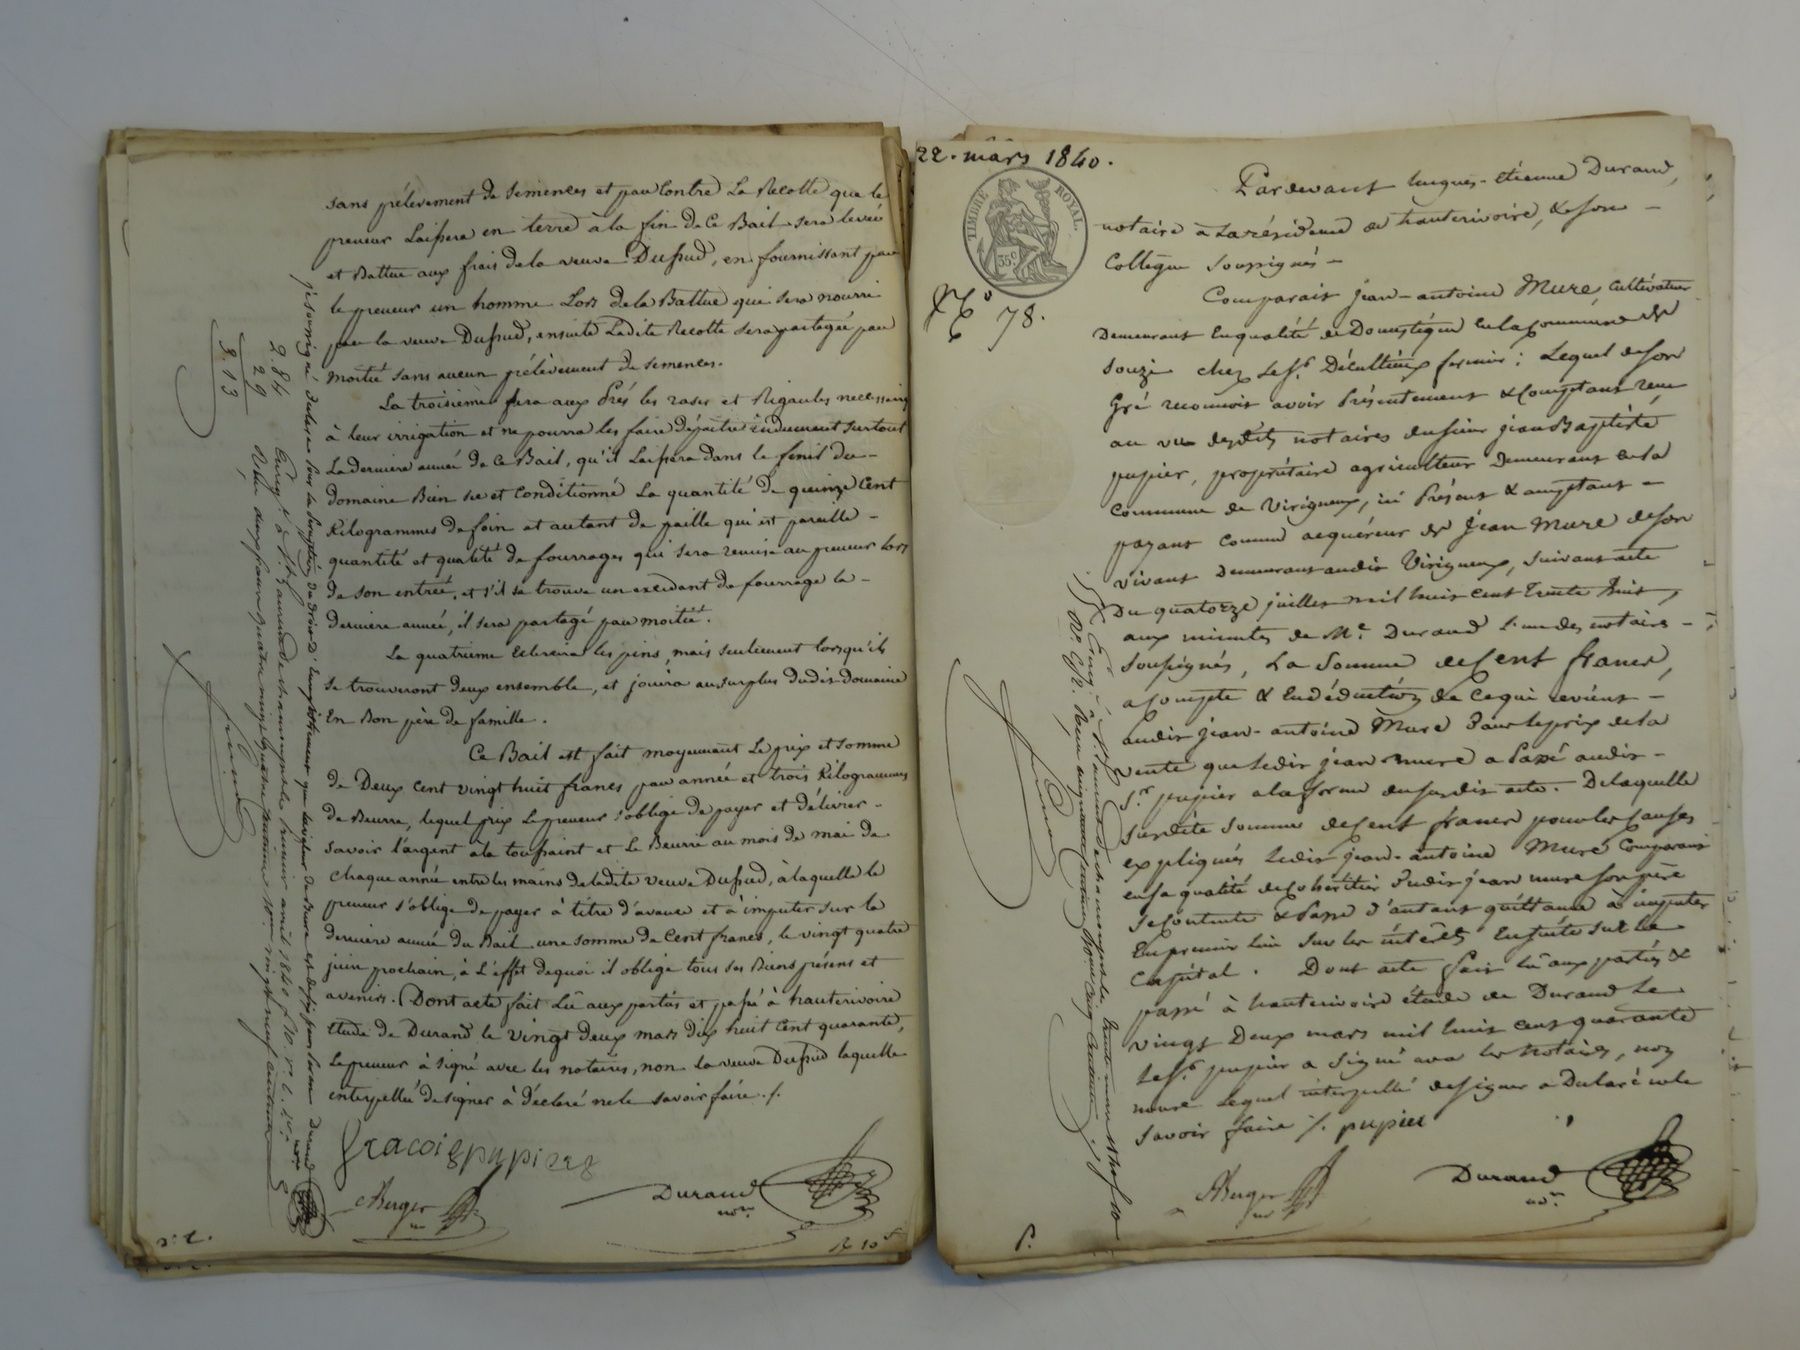 sans prélevement de semences et par contre La Recolte que le
preneur Laissera en terre à la fin de ce Bail sera levée
et Battue aux frais de la veuve Dussud, en fournissant par
le preneur un homme Lors de la Battue qui sera nourri
par la veuve Dussud, ensuite Ladite Recolte sera partagée par
moitié sans aucun prélèvement de semences.
La troisième fera aux Prés les rases et Rigaules necessaires
à leur irrigation et ne pourra les faire dépaitre indument surtout
La derniere année de ce Bail, qu'il Laissera dans le fenil du
domaine Bien sec et conditionné La quantité de quinze cent
Kilogrammes de foin et autant de paille qui est pareille
quantité et qualité de fourrages qui sera remise au preneur lors
de son entrée, et s'il se trouve un excédant de fourrage la
derniere année, il sera partagé par moitié.
La quatrieme les pins, mais seulement lorsqu'ils
se trouveront deux ensemble, et jouira au surplus dudit domaine
En Bon père de famille.
Ce Bail est fait moyennant Le prix et somme
de Deux cent vingt huit francs par année et trois Kilogrammes
de Beurre, lequel prix Le preneur s'oblige de payer et délivrer
savoir l'argent a la toussaint et Le Beurre au mois de mai de
chaque année entre les mains de ladite veuve Dussud, à laquelle le
preneur s'oblige de payer à titre d'avance et à imputer sur la
derniere année du Bail une somme de cent francs, le vingt quatre
juin prochain, à L'effet de quoi il oblige tous ses Biens présens et
avenirs. Dont acte fait Lu aux parties et passé à hauterivoire
étude de Durand le vingt deux mars dix huit cent quarante,
Le preneur à signé avec les notaires, non la veuve Dussud laquelle
interpellée de signer à déclaré ne le savoir faire ./.
pupier
Berger
Durand
nore
2 84
29
3,13
22. mars 1840.
TIMBRE ROYAL
35c
No 78.
Pardevant hugues-étienne Durand,
notaire à La résidence de hauterivoire, & son
Collègue soussignés
Comparait jean-antoine Mure, cultivateur
Demeurant en qualité de Domestique en la commune de
souzi chez le sr. Décultieux fermier: Lequel de son
gré reconnoit avoir Présentement & comptant reçu
au vu desdits notaires du sieur jean Baptiste
pupier, propriétaire agriculteur demeurant en la
commune de Virigneux, ici Présent & acceptant
payant comme acquéreur de jean Mure de son
vivant demeurant audit Virigneux, suivant acte
Du quatorze juillet mil huit cent trente huit,
aux minutes de Me Durand l'un des notaires
soussignés, La somme de cent francs,
acompte & En déduction de ce qui revient
audit jean-antoine Mure dans le prix de la
vente que ledit jean mure a Passé audit
sr pupier a la forme du susdit acte. De laquelle
susdite somme de cent francs pour les causes
expliquées ledit jean-antoine Mure comparant
en sa qualité de cohéritier dudit jean mure son père
se contente & Passe d'autant quittance à imputer
En premier lieu sur les intérêts Ensuite sur le
Capital. Dont acte fait lu aux parties &
passé à hauterivoire étude de Durand le
vingt Deux mars mil huit cent quarante
Le sr. pupier a signé avec les Notaires, non
mure Lequel interpellé de signer a Déclaré ne le
savoir faire ./. pupier
Berger
Durand
nore